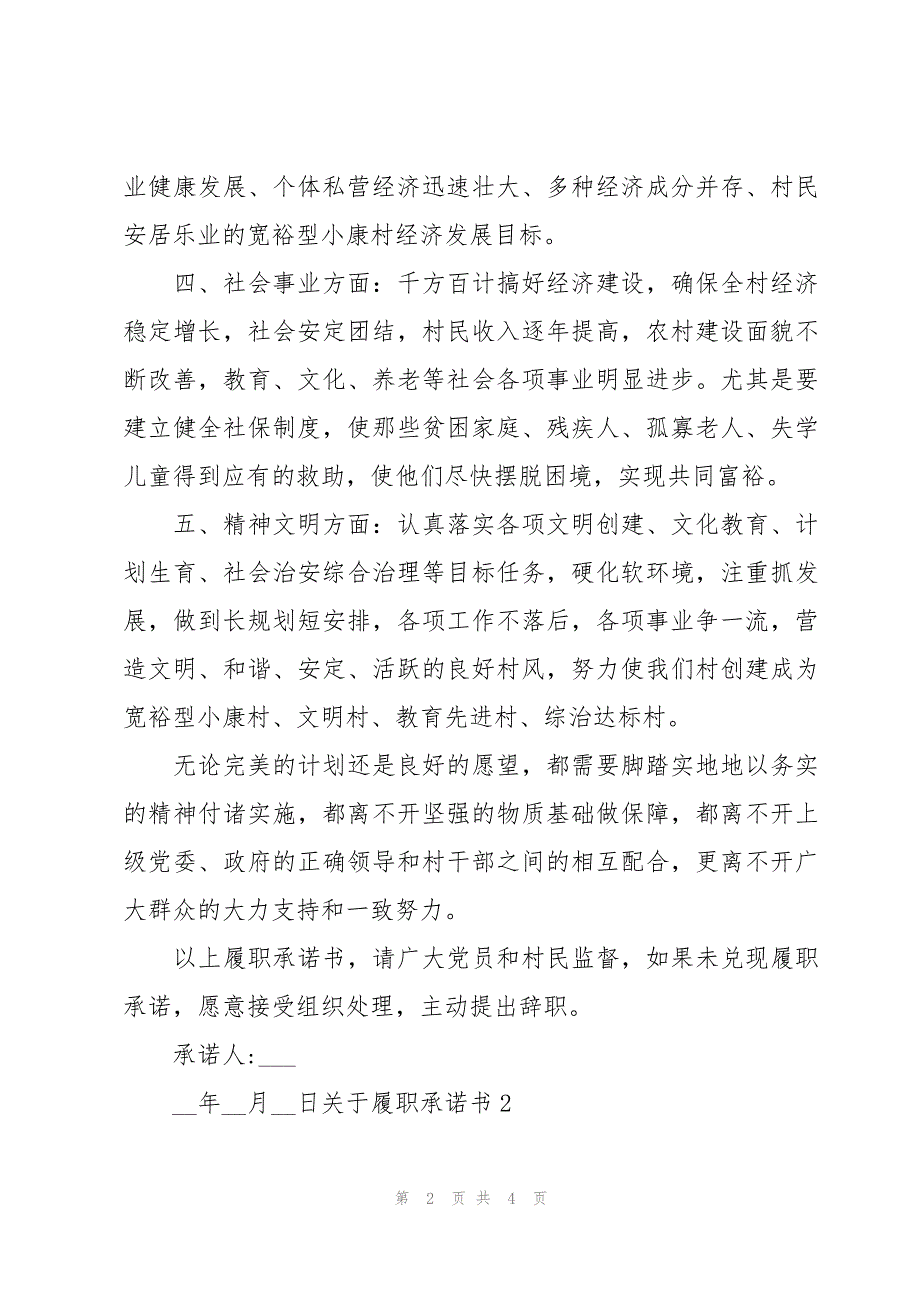 业健康发展、个体私营经济迅速壮大、多种经济成分并存、村民
安居乐业的宽裕型小康村经济发展目标。
四、社会事业方面：千方百计搞好经济建设，确保全村经济
稳定增长，社会安定团结，村民收入逐年提高，农村建设面貌不
断改善，教育、文化、养老等社会各项事业明显进步。尤其是要
建立健全社保制度，使那些贫困家庭、残疾人、孤寡老人、失学
儿童得到应有的救助，使他们尽快摆脱困境，实现共同富裕。
五、精神文明方面：认真落实各项文明创建、文化教育、计
划生育、社会治安综合治理等目标任务，硬化软环境，注重抓发
展，做到长规划短安排，各项工作不落后，各项事业争一流，营
造文明、和谐、安定、活跃的良好村风，努力使我们村创建成为
宽裕型小康村、文明村、教育先进村、综治达标村。
无论完美的计划还是良好的愿望，都需要脚踏实地地以务实
的精神付诸实施，都离不开坚强的物质基础做保障，都离不开上
级党委、政府的正确领导和村干部之间的相互配合，更离不开广
大群众的大力支持和一致努力。
以上履职承诺书，请广大党员和村民监督，如果未兑现履职
承诺，愿意接受组织处理，主动提出辞职。
承诺人:___
__年__月__日关于履职承诺书2
第 2 页 共 4 页